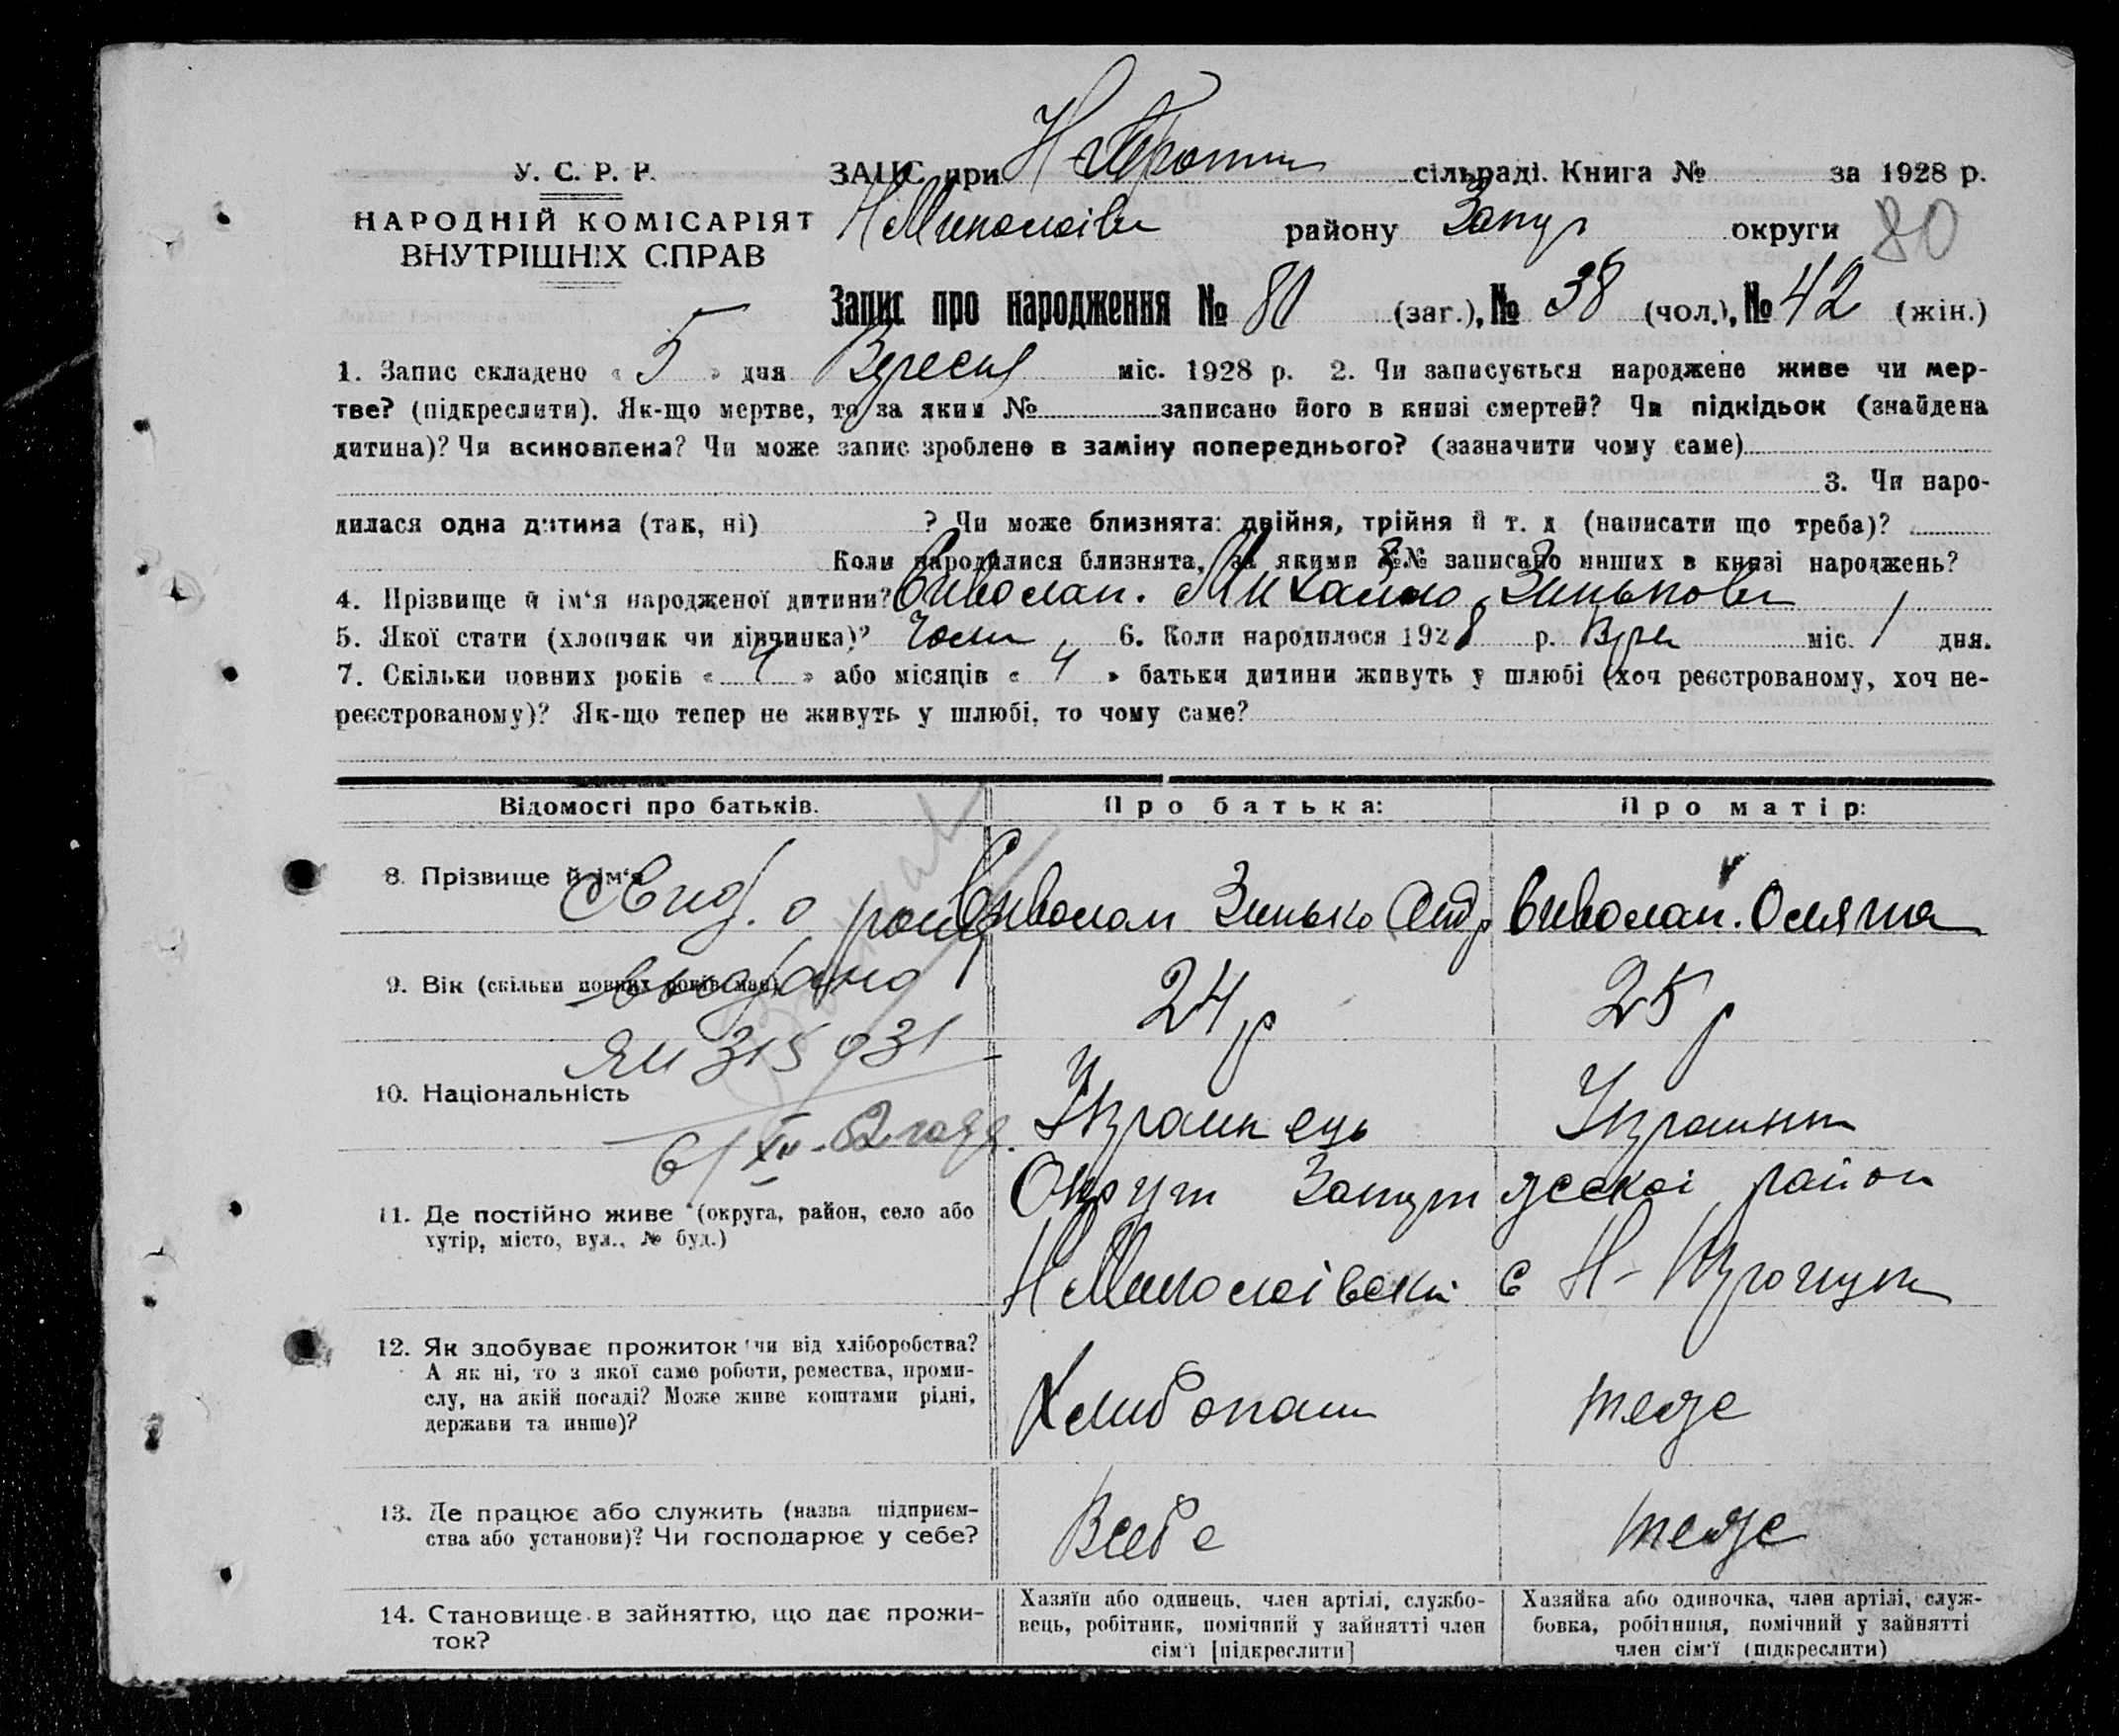 У. С. Р. Р.
НАРОДНІЙ КОМІСАРІЯТ
ВНУТРІШНІХ СПРАВ
ЗАЦС при сільраді. Книга № за 1928 р.
району Запор округи 80
Запис про народження № 80 (заг.), № 38 (чол.), № 42 (жін.)
1. Запис складено « 5 » дня Вересня міс. 1928 р. 2. Чи записується народжене живе чи мер-
тве? (підкреслити). Як-що мертве, то за яким № записано його в книзі смертей? Чи підкідьок (знайдена
дитина)? Чи всиновлена? Чи може запис зроблено в заміну попереднього? (зазначити чому саме)
3. Чи наро-
дилася одна дитина (так, ні) ? Чи може близнята: двійня, трійня й т. д (написати що треба)?
Коли народилися близнята, за якими №№ записано инших в книзі народжень?
4. Прізвище й ім'я народженої дитини? Сиволап. Михайло Зинькови
5. Якої стати (хлопчик чи дівчинка)? Чоли 6. Коли народилося 1928 р. Вере міс. 1 дня.
7. Скільки повних років « 4 » або місяців « 4 » батьки дитини живуть у шлюбі (хоч реєстрованому, хоч не-
реєстрованому)? Як-що тепер не живуть у шлюбі, то чому саме?
Відомості про батьків. Про батька: Про матір:
8. Прізвище й ім'я Сиволап Зинько Анд Сиволап. Оляна
Свид. о рожд
9. Вік (скільки повних років має) 24 р 25 р
выдано
ЯИ 315931
10. Національність Украинець Украинк
6/XII-52 года.
11. Де постійно живе (округа, район, село або
хутір, місто, вул., № буд.)
Округ район
с
12. Як здобуває прожиток чи від хліборобства?
А як ні, то з якої саме роботи, ремества, проми-
слу, на якій посаді? Може живе коштами рідні,
держави та инше)?
Хлибопаш теже
13. Де працює або служить (назва підприєм-
ства або установи)? Чи господарює у себе?
Всебе теже
14. Становище в зайняттю, що дає прожи-
ток?
Хазяїн або одинець, член артілі, службо-
вець, робітник, помічний у зайнятті член
сім'ї [підкреслити]
Хазяйка або одиночка, член артілі, служ-
бовка, робітниця, помічний у зайнятті
член сім'ї (підкреслити)